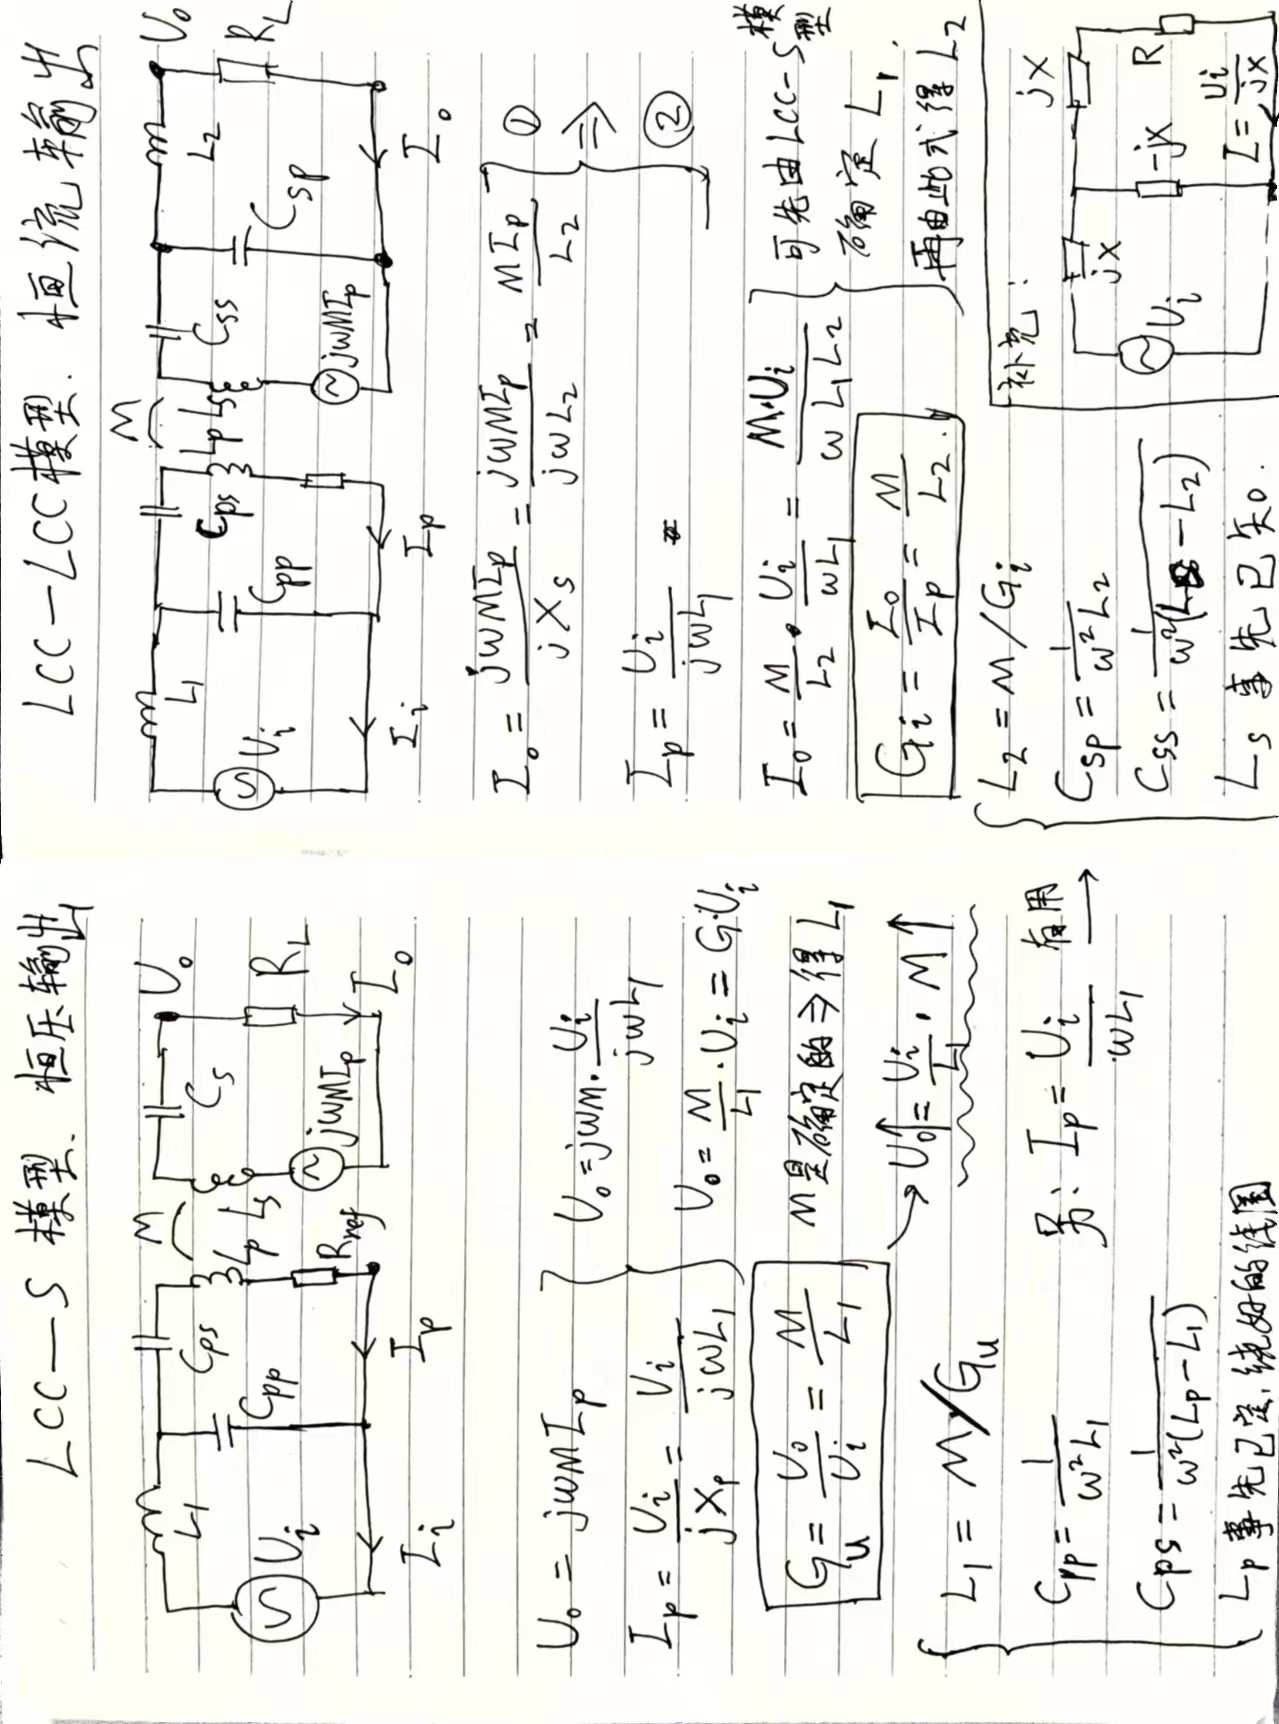 LCC—S 模型. 恒压输出
L₁
Cpp
Cps
M
Lp Ls
Rref
Cs
Uₒ
R_L
Uᵢ
jωMIp
Iᵢ
Ip
Iₒ
Uₒ = jωMIp
Ip = Uᵢ/jXp = Uᵢ/jωL₁
Uₒ = jωM · Uᵢ/jωL₁
Uₒ = M/L₁ · Uᵢ = G·Uᵢ
Gu = Uₒ/Uᵢ = M/L₁
M是确定的 ⇒ 得L₁
↑Uₒ = Uᵢ/L₁ · M↑
L₁ = M/Gu
Cpp = 1/ω²L₁
Cps = 1/ω²(Lp−L₁)
Lp 事先已定, 绕好的线圈
另: Ip = Uᵢ/ωL₁ 有用 →
LCC—LCC模型. 恒流输出
L₁
Cpp
Cps
M
Lp Ls
Css
Csp
L₂
Uₒ
R_L
Uᵢ
jωMIp
Iᵢ
Ip
Iₒ
Iₒ = jωMIp/jXs = jωMIp/jωL₂ = MIp/L₂ ①
⇒
Ip = Uᵢ/jωL₁ ②
Iₒ = M/L₂ · Uᵢ/ωL₁ = M·Uᵢ/ωL₁L₂
可先由LCC-S模型
确定L₁.
再由此式得L₂
Gᵢ = Iₒ/Ip = M/L₂.
L₂ = M/Gᵢ
Csp = 1/ω²L₂
Css = 1/ω²(Ls−L₂)
Ls 事先已知.
补充:
Uᵢ
jX
-jX
jX
R
I = Uᵢ/jX